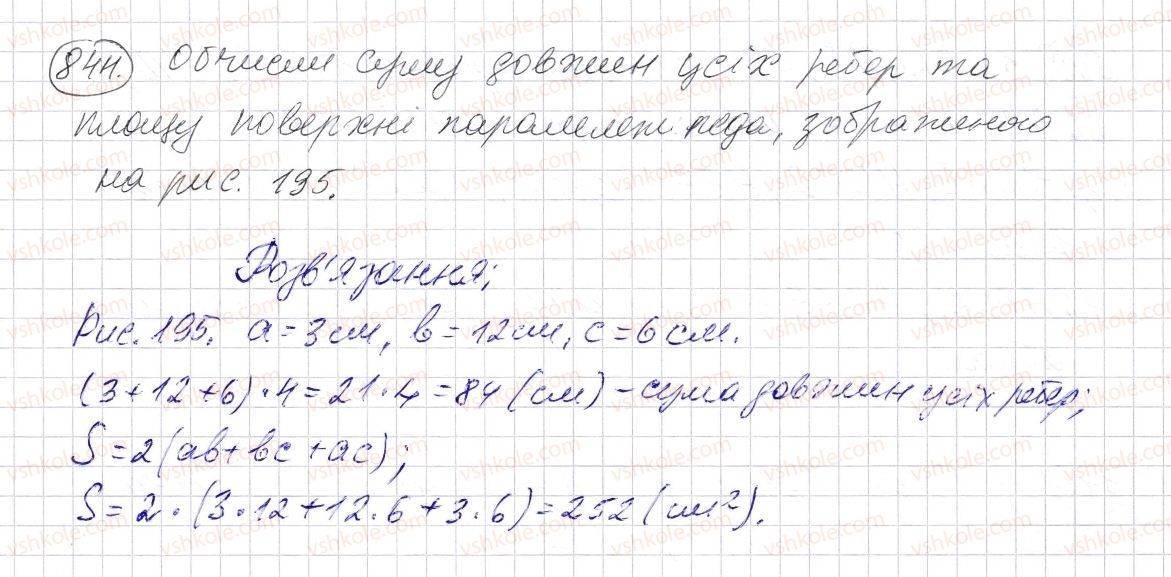 844. Обчисли суму довжин усіх ребер та
площу поверхні паралелепіпеда, зображеного
на рис. 195.
Розв'язання;
Рис. 195. a = 3 см, b = 12 см, c = 6 см.
(3 + 12 + 6) · 4 = 21 · 4 = 84 (см) - сума довжин усіх ребер;
S = 2 (ab + bc + ac);
S = 2 · (3 · 12 + 12 · 6 + 3 · 6) = 252 (см²).